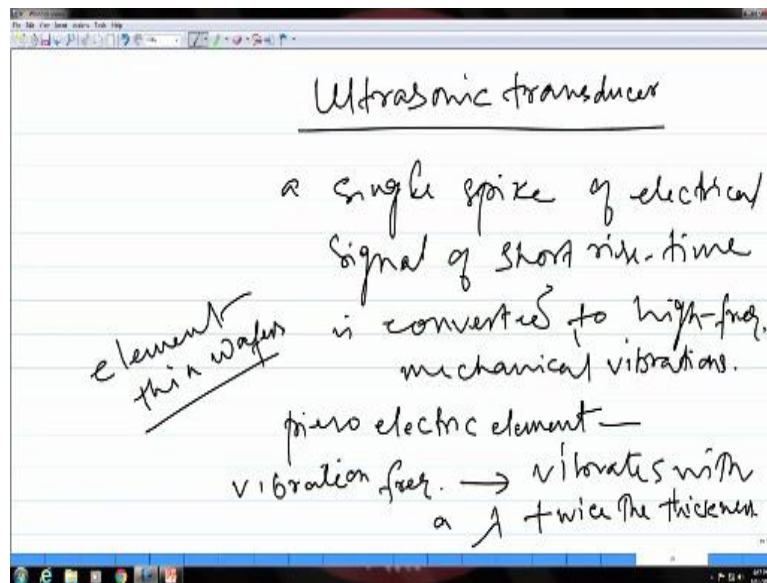 Ultrasonic transducer
a single spike of electrical
signal of short rise-time
is converted to high-freq.
mechanical vibrations.
element
thin wafers
piezo electric element —
vibration freq. → vibrates with
a λ twice the thickness